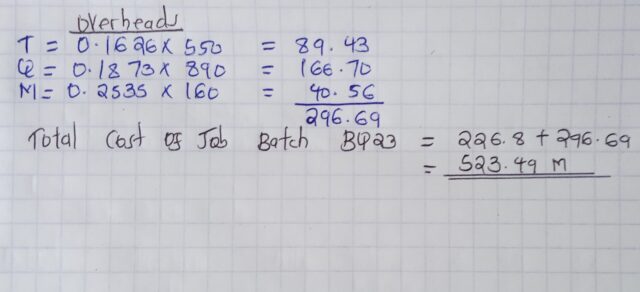 Overheads
T = 0.1626 x 550 = 89.43
Q = 0.1873 x 890 = 166.70
M = 0.2535 x 160 = 40.56
296.69
Total Cost of Job Batch BQ23 = 226.8 + 296.69
= 523.49 M